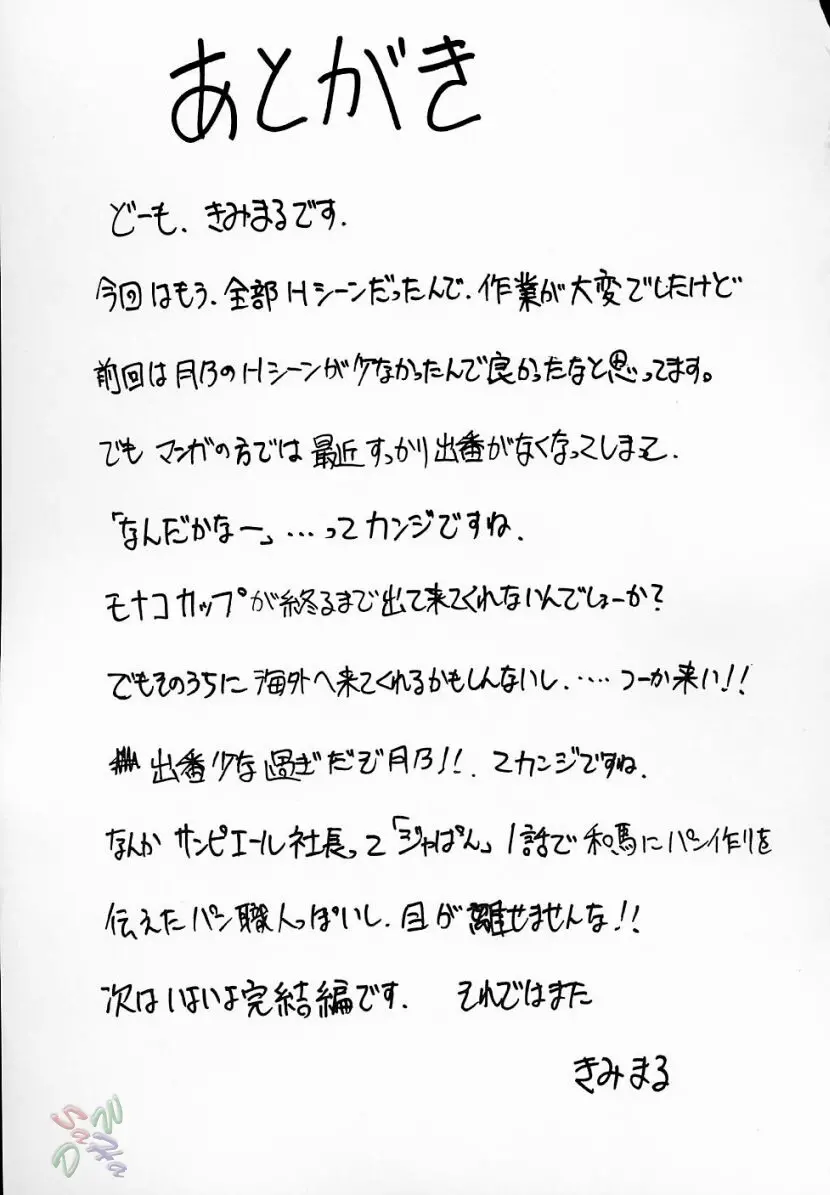 あとがき
どーも、きみまるです.
今回はもう、全部Hシーンだったんで、作業が大変でしたけど
前回は月乃のHシーンが少なかったんで良かったなと思ってます。
でも マンガの方では 最近すっかり出番がなくなってしまって.
「なんだかなー」…ってカンジですね.
モナコカップが終るまで出て来てくれないんでしょーか?
でもそのうちに 海外へ来てくれるかもしんないし.…‥つーか来い!!
出番少な過ぎだぞ月乃!!.てカンジですね.
なんか サンピエール社長って「ジャぱん」1話で和馬にパン作りを
伝えたパン職人っぽいし.目が離せませんな!!
次はいよいよ完結編です. それではまた
きみまる